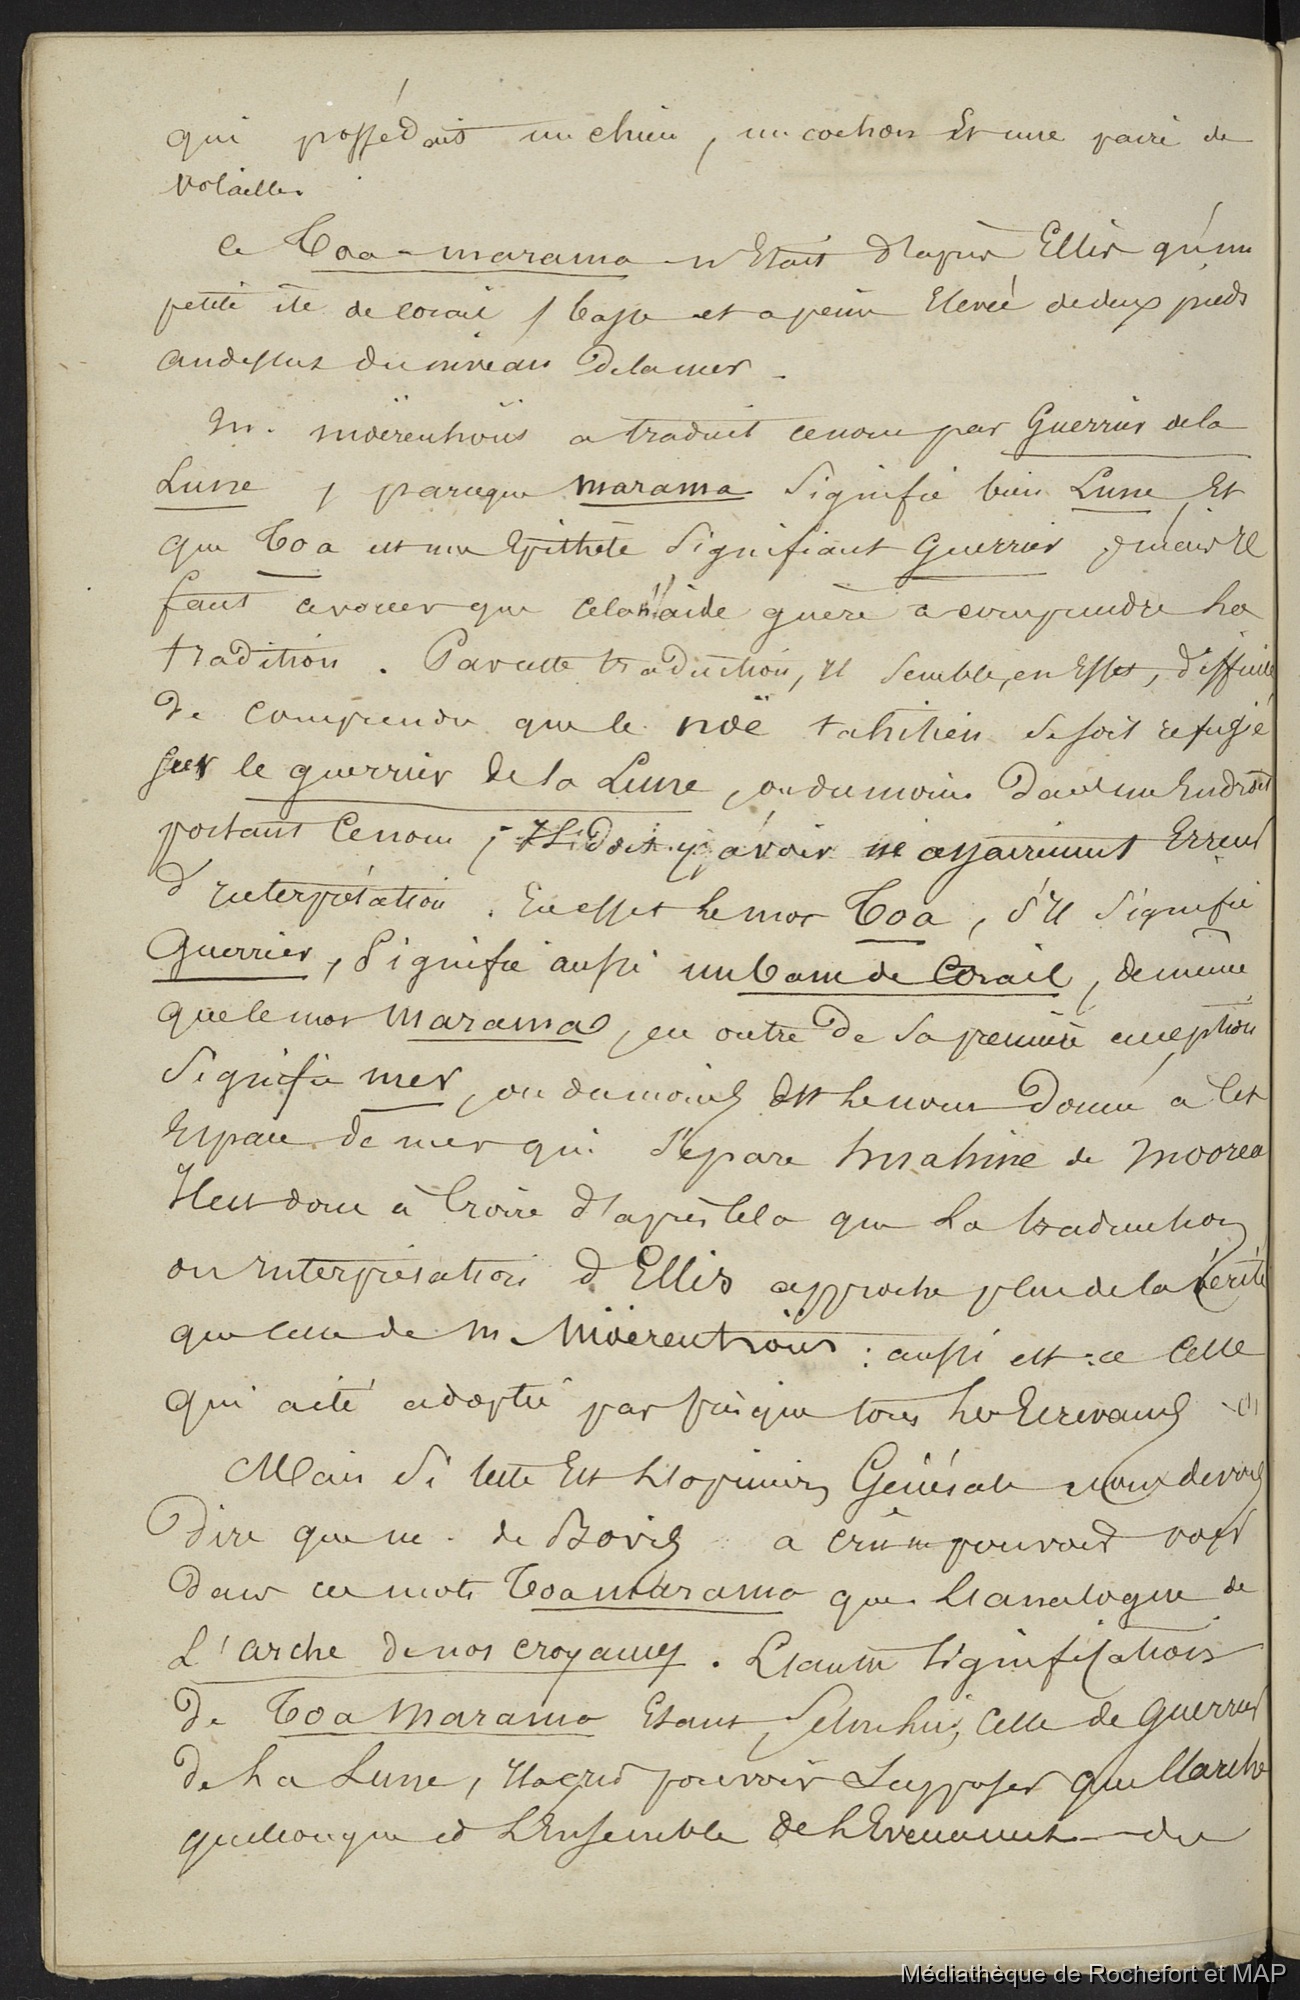 qui possédait un chien, un cochon Et une paire de
volailles.
Ce Toa-marama n'Etait d'après Ellis qu'une
petite île de corail, basse et a peine Elevée de deux pieds
au dessus du niveau de la mer.
M. Moërenhoüs a traduit ce nom par Guerrier de la
Lune, parceque marama signifie bien Lune Et
que Toa est un Epithète signifiant Guerrier, mais Il
faut avouer que cela n'aide guère a comprendre la
tradition. Par cette traduction, Il semble, en Effet, difficile
de comprendre que le noë tahitien se soit refugié
sur le guerrier de la Lune, ou du moins dans un Endroit
portant ce nom; Il doit y avoir nécessairement Erreur
d'Interprétation. En effet le mot Toa, s'Il signifie
Guerrier, signifie aussi un banc de Corail, de même
que le mot Marama, en outre de sa première acception
signifie mer, ou du moins Est le nom donné a cet
Espace de mer qui sépare huahine de Moorea
Il est donc à croire d'après cela que la traduction
ou Interprétation d'Ellis approche plus de la vérité
que celle de M. Möerenhoüs : aussi est-ce celle
qui a été adoptée par presque tous les Ecrivains (1)
Mais si telle Est l'opinion Générale nous devons
Dire que M. de Bovis a crû ne pouvoir voir
dans ces mots Toa marama que l'analogue de
L'arche de nos croyances. L'autre signification
de Toa Marama Etant, selon lui, celle de Guerrier
de la Lune, Il a cru pouvoir supposer que l'arche
quelconque et l'Ensemble de l'Evènement du
Médiathèque de Rochefort et MAP